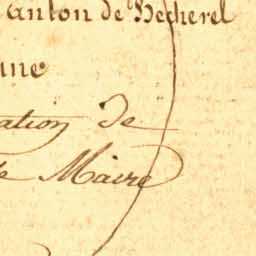 anton de Becherel
une
ation de
e Maire